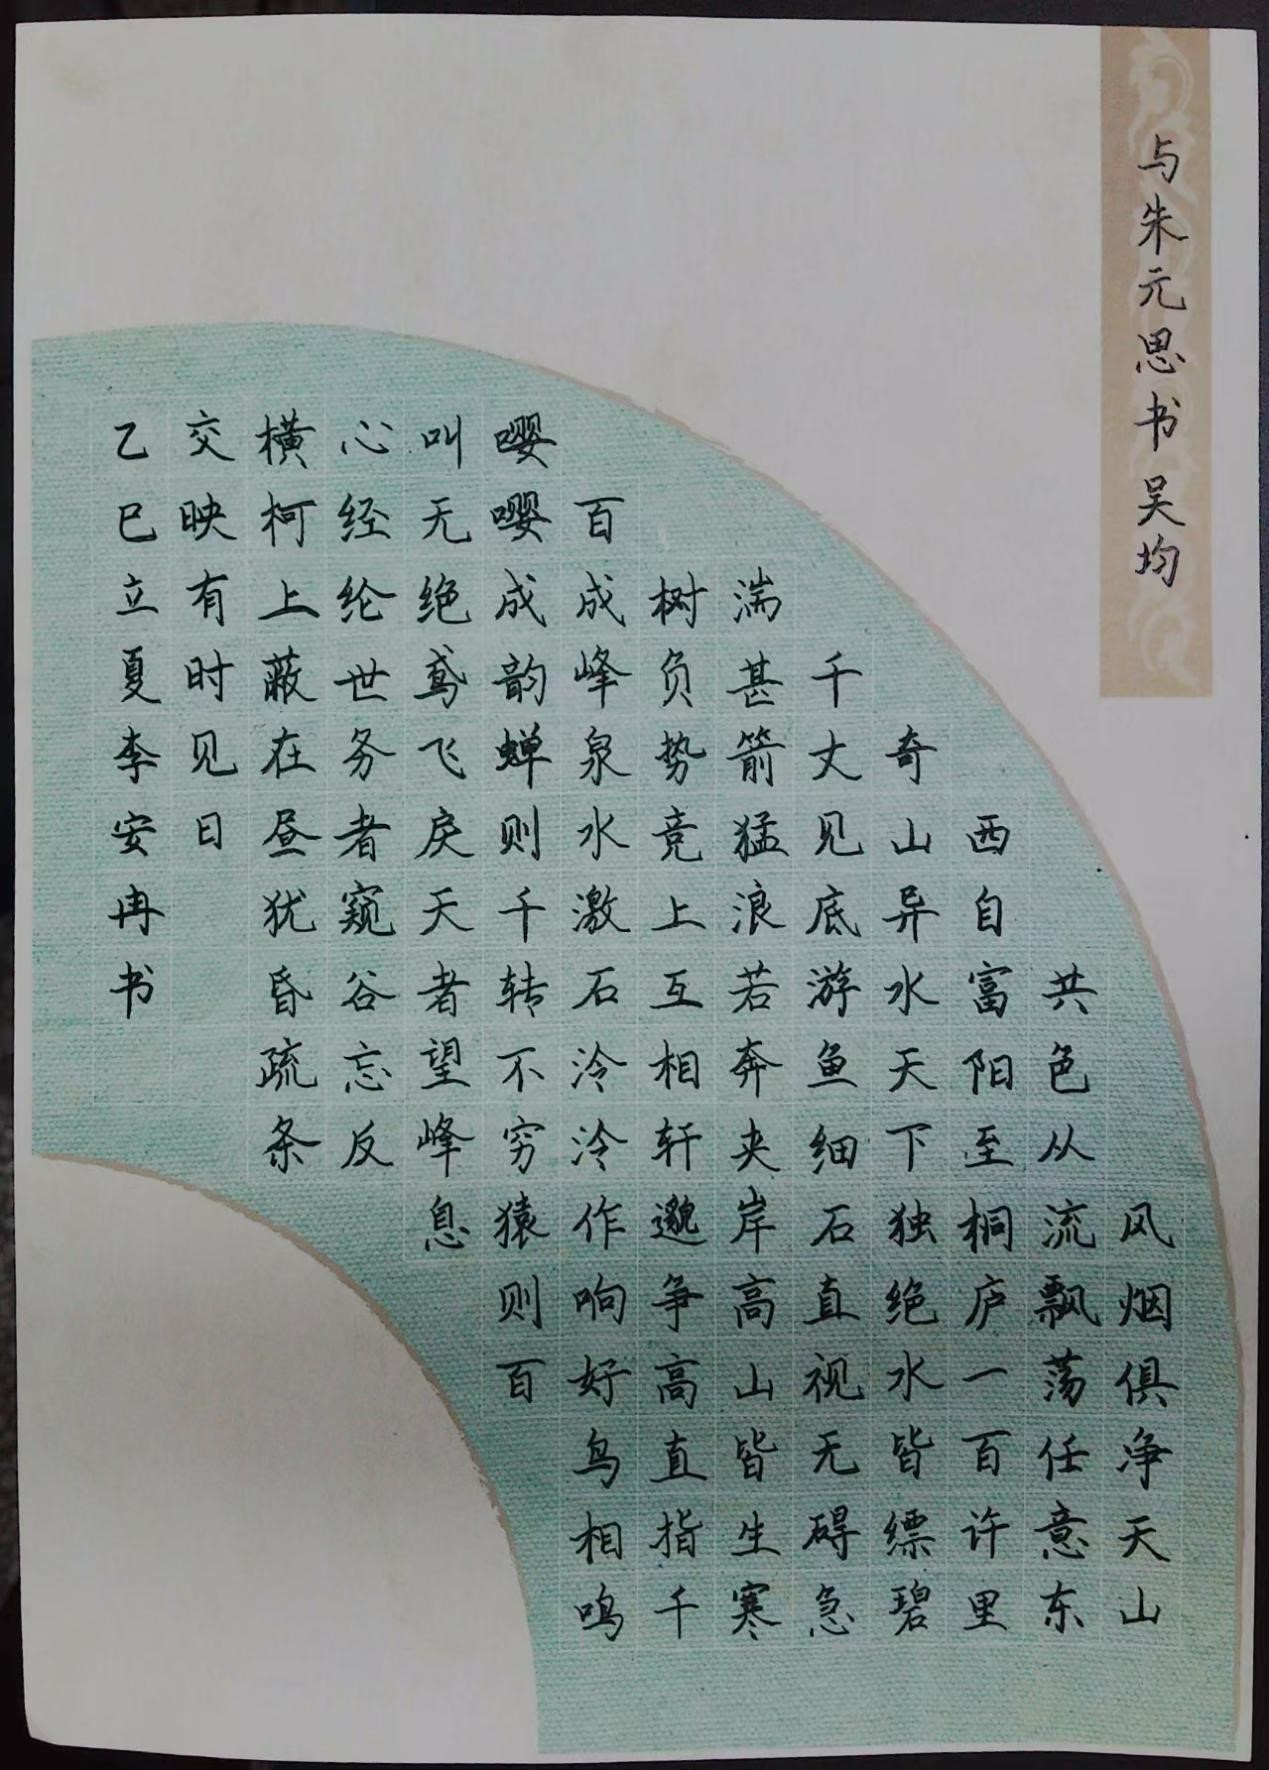 与朱元思书吴均
风烟俱净天山
共色从流飘荡任意东
西自富阳至桐庐一百许里
奇山异水天下独绝水皆缥碧
千丈见底游鱼细石直视无碍急
湍甚箭猛浪若奔夹岸高山皆生寒
树负势竞上互相轩邈争高直指千
百成峰泉水激石泠泠作响好鸟相鸣
嘤嘤成韵蝉则千转不穷猿则百
叫无绝鸢飞戾天者望峰息
心经纶世务者窥谷忘反
横柯上蔽在昼犹昏疏条
交映有时见日
乙巳立夏李安冉书